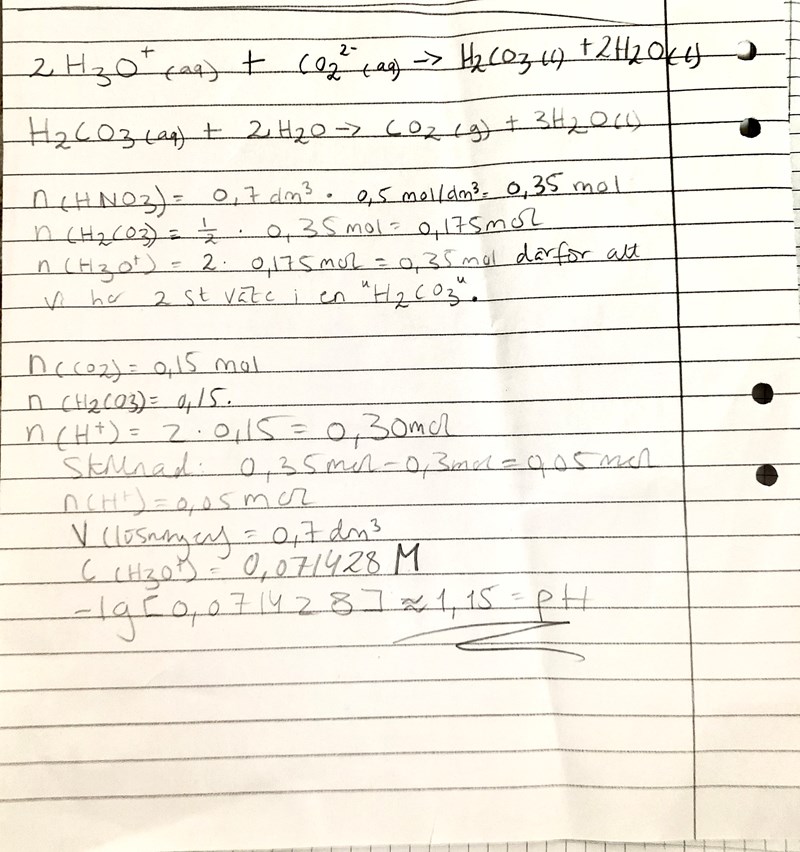 2H₃O⁺(aq) + CO₂²⁻(aq) → H₂CO₃(l) + 2H₂O(l)
H₂CO₃(aq) + 2H₂O → CO₂(g) + 3H₂O(l)
n(HNO₃) = 0,7 dm³ · 0,5 mol/dm³ = 0,35 mol
n(H₂CO₃) = ½ · 0,35 mol = 0,175 mol
n(H₃O⁺) = 2 · 0,175 mol = 0,35 mol därför att
vi har 2 st väte i en "H₂CO₃".
n(CO₂) = 0,15 mol
n(H₂CO₃) = 0,15.
n(H⁺) = 2 · 0,15 = 0,30 mol
Skillnad: 0,35 mol - 0,3 mol = 0,05 mol
n(H⁺) = 0,05 mol
V(lösningen) = 0,7 dm³
C(H₃O⁺) = 0,071428 M
-lg[0,071428] ≈ 1,15 = pH